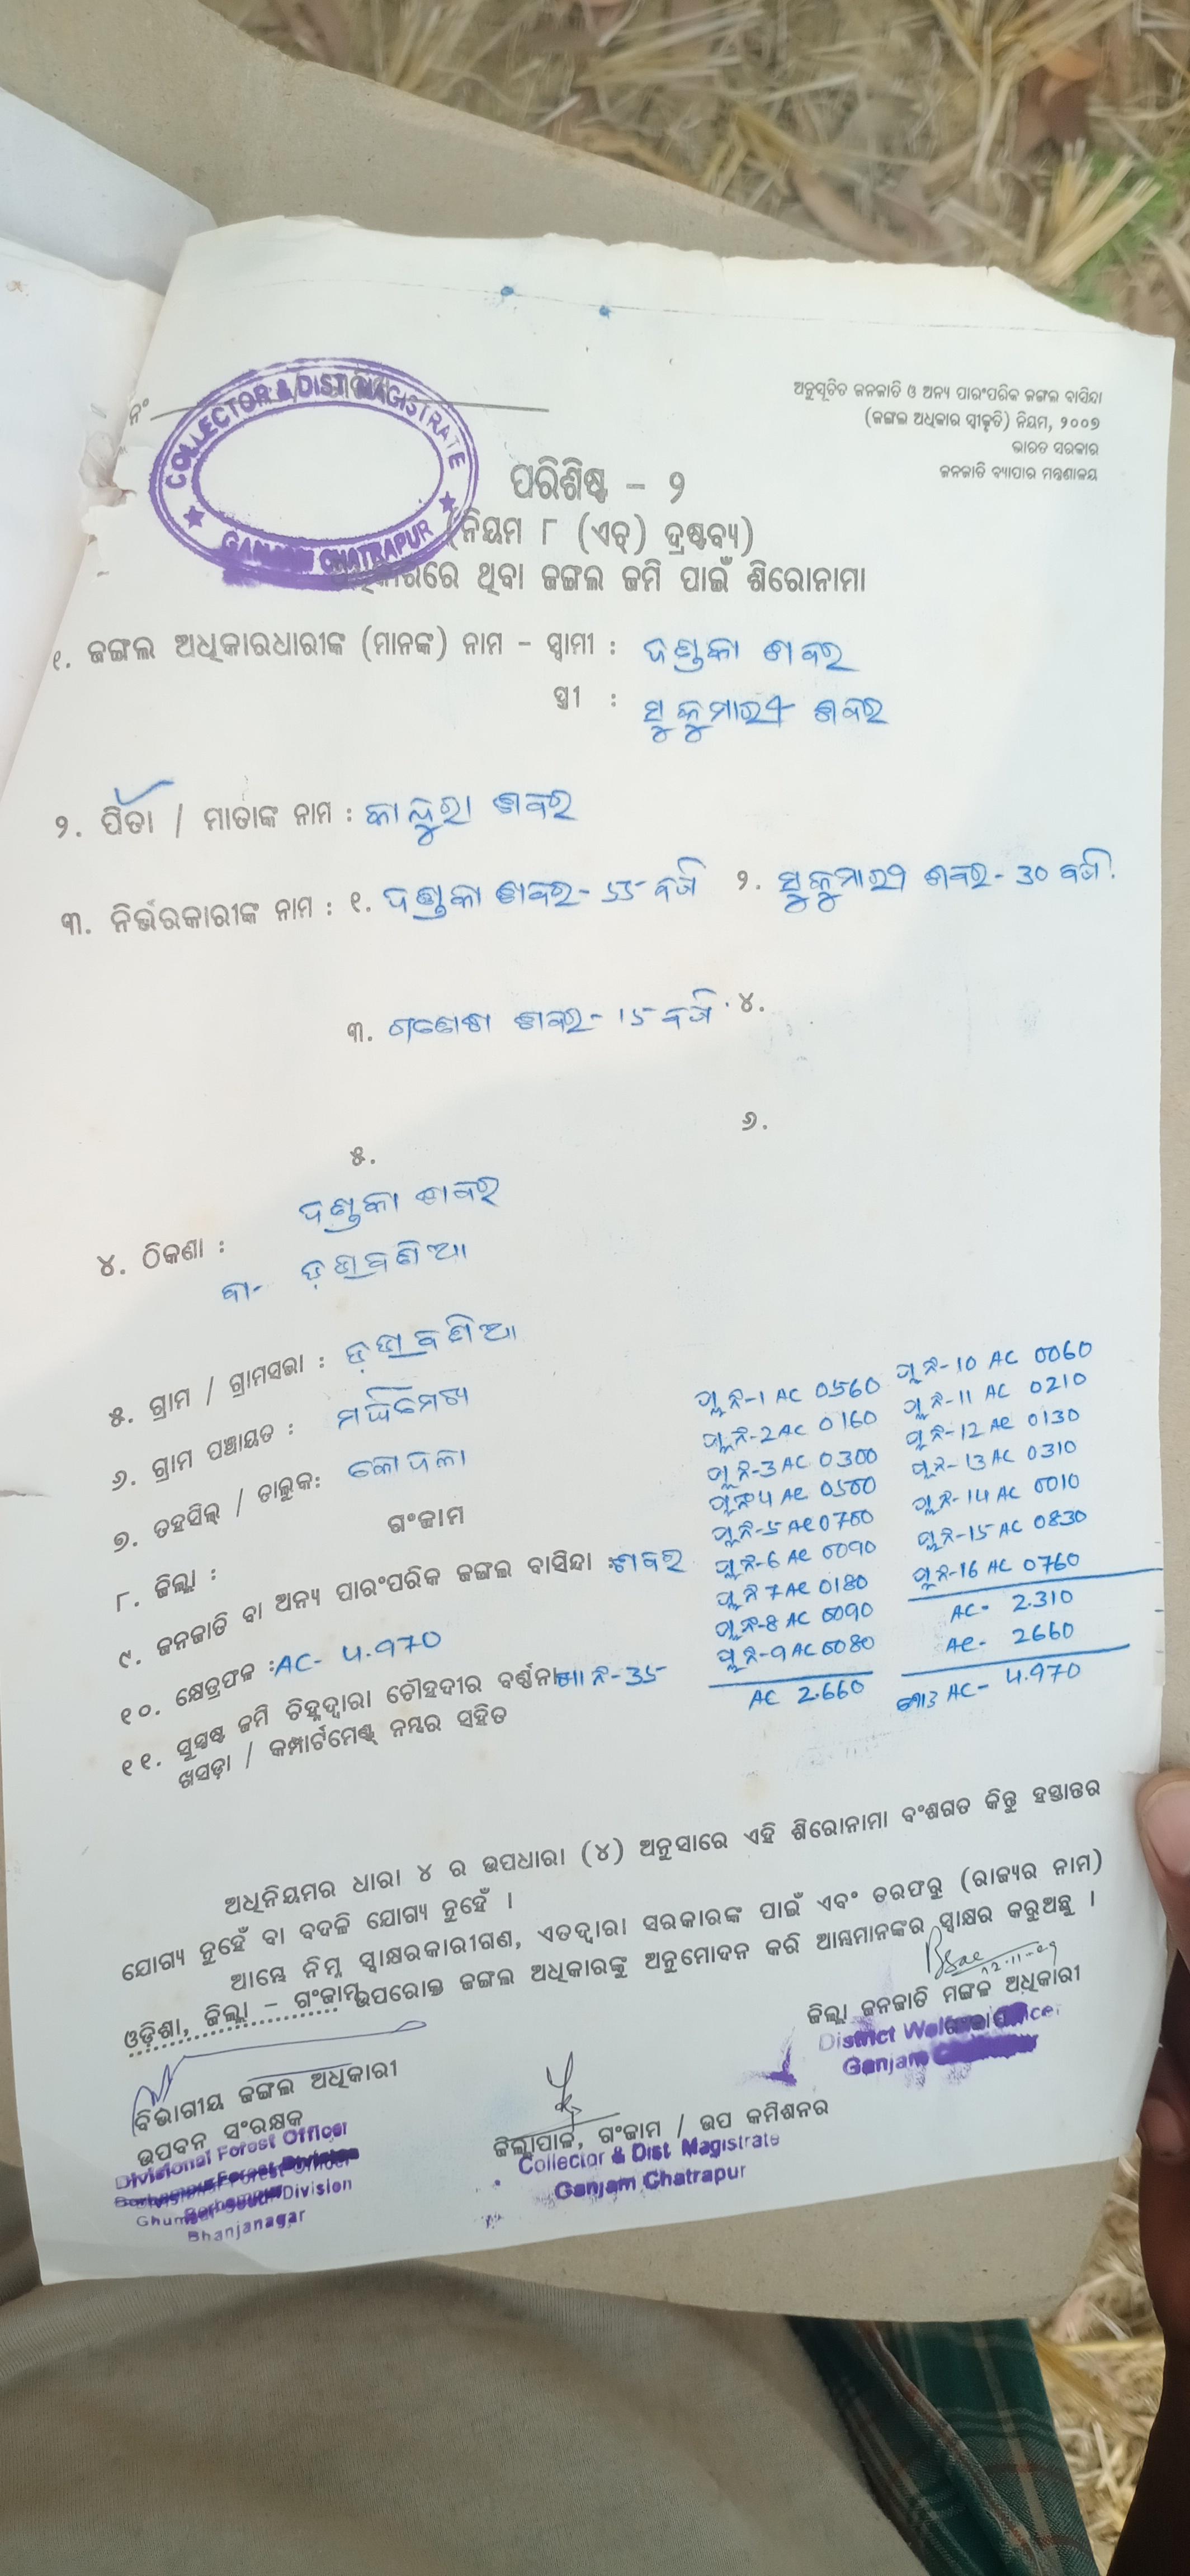 ନଂ
COLLECTOR & DIST. MAGISTRATE
GANJAM CHATRAPUR
ଅନୁସୂଚିତ ଜନଜାତି ଓ ଅନ୍ୟ ପାରଂପରିକ ଜଙ୍ଗଲ ବାସିନ୍ଦା
(ଜଙ୍ଗଲ ଅଧିକାର ସ୍ୱୀକୃତି) ନିୟମ, ୨୦୦୭
ଭାରତ ସରକାର
ଜନଜାତି ବ୍ୟାପାର ମନ୍ତ୍ରଣାଳୟ
ପରିଶିଷ୍ଟ - ୨
(ନିୟମ ୮ (ଏଚ୍) ଦ୍ରଷ୍ଟବ୍ୟ)
ଅଧିକାରରେ ଥିବା ଜଙ୍ଗଲ ଜମି ପାଇଁ ଶିରୋନାମା
୧. ଜଙ୍ଗଲ ଅଧିକାରଧାରୀଙ୍କ (ମାନଙ୍କ) ନାମ - ସ୍ୱାମୀ : ଦଣ୍ଡକା ଶବର
ସ୍ତ୍ରୀ : ସୁକୁମାରୀ ଶବର
୨. ପିତା / ମାତାଙ୍କ ନାମ : କାନ୍ଦୁରା ଶବର
୩. ନିର୍ଭରକାରୀଙ୍କ ନାମ : ୧. ଦଣ୍ଡକା ଶବର - 55 ବର୍ଷ ୨. ସୁକୁମାରୀ ଶବର - 30 ବର୍ଷ.
୩. ଗଣେଶ ଶବର - 15 ବର୍ଷ. ୪.
୫. ୬.
୪. ଠିକଣା : ଦଣ୍ଡକା ଶବର
ବା-
୫. ଗ୍ରାମ / ଗ୍ରାମସଭା :
୬. ଗ୍ରାମ ପଞ୍ଚାୟତ :
୭. ତହସିଲ୍ / ତାଲୁକ: କୋଦଳା
୮. ଜିଲ୍ଲା : ଗଂଜାମ
୯. ଜନଜାତି ବା ଅନ୍ୟ ପାରଂପରିକ ଜଙ୍ଗଲ ବାସିନ୍ଦା : ଶବର
୧୦. କ୍ଷେତ୍ରଫଳ : AC- 4.970
୧୧. ସୁସ୍ପଷ୍ଟ ଜମି ଚିହ୍ନଦ୍ୱାରା ଚୌହଦୀର ବର୍ଣ୍ଣନା ଖା ନଂ-35
ଖସଡ଼ା / କମ୍ପାର୍ଟମେଣ୍ଟ୍ ନମ୍ବର ସହିତ
ପ୍ଲ ନଂ-1 AC 0560
ପ୍ଲ ନଂ-2 AC 0160
ପ୍ଲ ନଂ-3 AC 0300
ପ୍ଲ ନଂ-4 AC 0500
ପ୍ଲ ନଂ-5 AC 0700
ପ୍ଲ ନଂ-6 AC 0090
ପ୍ଲ ନଂ 7 AC 0180
ପ୍ଲ ନଂ-8 AC 0090
ପ୍ଲ ନଂ-9 AC 0080
AC 2.660
ପ୍ଲ ନଂ-10 AC 0060
ପ୍ଲ ନଂ-11 AC 0210
ପ୍ଲ ନଂ-12 AC 0130
ପ୍ଲ ନଂ-13 AC 0310
ପ୍ଲ ନଂ-14 AC 0010
ପ୍ଲ ନଂ-15 AC 0830
ପ୍ଲ ନଂ-16 AC 0760
AC- 2.310
AC- 2660
AC- 4.970
ଅଧିନିୟମର ଧାରା ୪ ର ଉପଧାରା (୪) ଅନୁସାରେ ଏହି ଶିରୋନାମା ବଂଶଗତ କିନ୍ତୁ ହସ୍ତାନ୍ତର
ଯୋଗ୍ୟ ନୁହେଁ ବା ବଦଳି ଯୋଗ୍ୟ ନୁହେଁ ।
ଆମ୍ଭେ ନିମ୍ନ ସ୍ୱାକ୍ଷରକାରୀଗଣ, ଏତଦ୍ୱାରା ସରକାରଙ୍କ ପାଇଁ ଏବଂ ତରଫରୁ (ରାଜ୍ୟର ନାମ)
ଓଡ଼ିଶା, ଜିଲ୍ଲା - ଗଂଜାମ ଉପରୋକ୍ତ ଜଙ୍ଗଲ ଅଧିକାରଙ୍କୁ ଅନୁମୋଦନ କରି ଆମ୍ଭମାନଙ୍କର ସ୍ୱାକ୍ଷର କରୁଅଛୁ ।
ଜିଲ୍ଲା ଜନଜାତି ମଙ୍ଗଳ ଅଧିକାରୀ
District Welfare Officer
Ganjam
ବିଭାଗୀୟ ଜଙ୍ଗଲ ଅଧିକାରୀ
ଉପବନ ସଂରକ୍ଷକ
Divisional Forest Officer
Bhanjanagar
ଜିଲ୍ଲାପାଳ, ଗଂଜାମ / ଉପ କମିଶନର
Collector & Dist. Magistrate
Ganjam Chatrapur